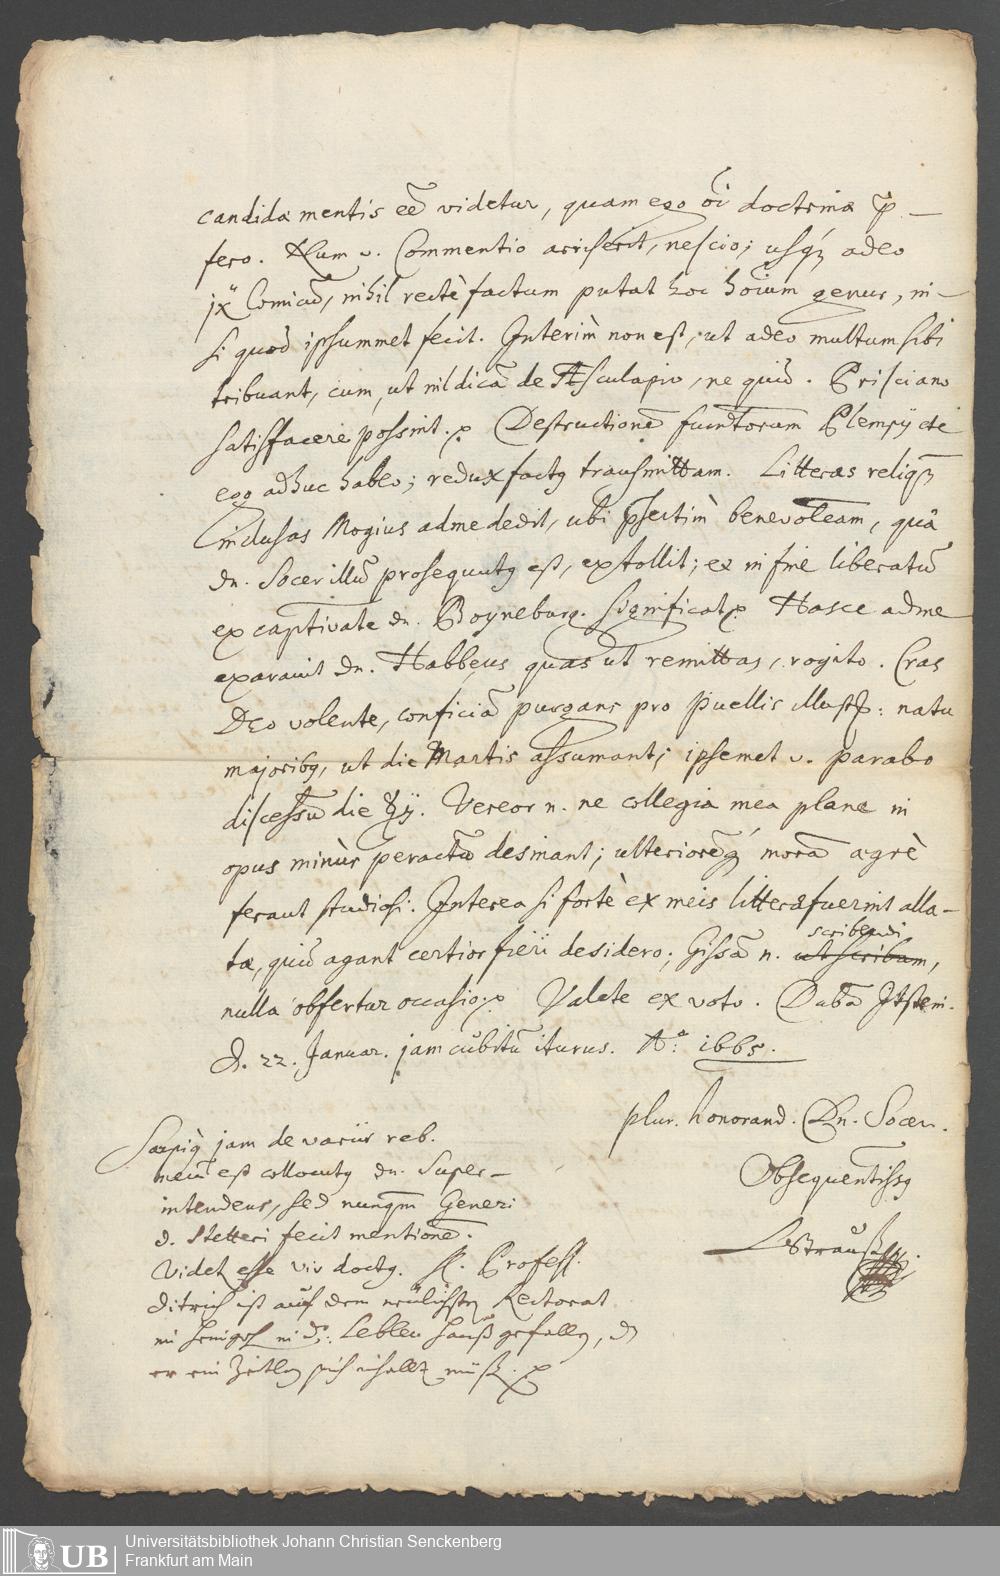 candidæ mentis eẽ videtur, quam ego õi doctrinæ p̃-
fero. Num v. Commentio arriserit, nescio; usq₃ adeo
jx Comicũ, nihil rectè factum putat hoc hoĩum genus, ni-
si quod ipsummet fecit. Interim non est, ut adeo multum sibi
tribuant, cum, ut nil dicã de Æsculapio, ne quid. Prisciano
satisfacere possint. Destructionẽ fundtorum Plempij
ego adhuc habeo; redux factg transmittam. Litteras reliqm
inclusas Mogius ad me dedit, ubi psertim benevoleam, quâ
dn. Socer illũ prosequutg est, extollit; et in fine liberatũ
ex captivate dn. Boyneburg. significat. Hasce ad me
exaravit Dn. Habbeus, quas ut remittas, rogito. Cras
Deo volente, conficiã purgans pro Puellis illustr: natu
majoribg, ut die Martis assumant; ipsemet v. parabo
discessũ die ♃ij. Vereor n. ne collegia mea plane in
opus minùs peractũ desinant; ulteriorẽq₃ morã ægrè
ferant studiosi. Interea si fortè ex meis litteræ fuerint alla-
tæ, quid agant certior fieri desidero; Gissã n. ut scribam, scribendi
nulla obfertur occasio. Valete ex voto. Datã Itstein.
d. 22. Januar. jam cubitũ iturus. Aº. 1665.
plur. honorand. Dn. Socer.
Obsequentissg
LStrauß
Sæpiq jam de variis reb.
mecũ est collocutg dn. Super-
intendens, sed nunqm Generi
d. Stetteri fecit mentionẽ.
Videt esse vir doctg. H. Profess.
Ditrich ist auf dem neülichsten Rectorat
in d: Leblen Hauß gefallen, dz
er ein Zeitlang sich inhallten muß.
Universitätsbibliothek Johann Christian Senckenberg
Frankfurt am Main
UB